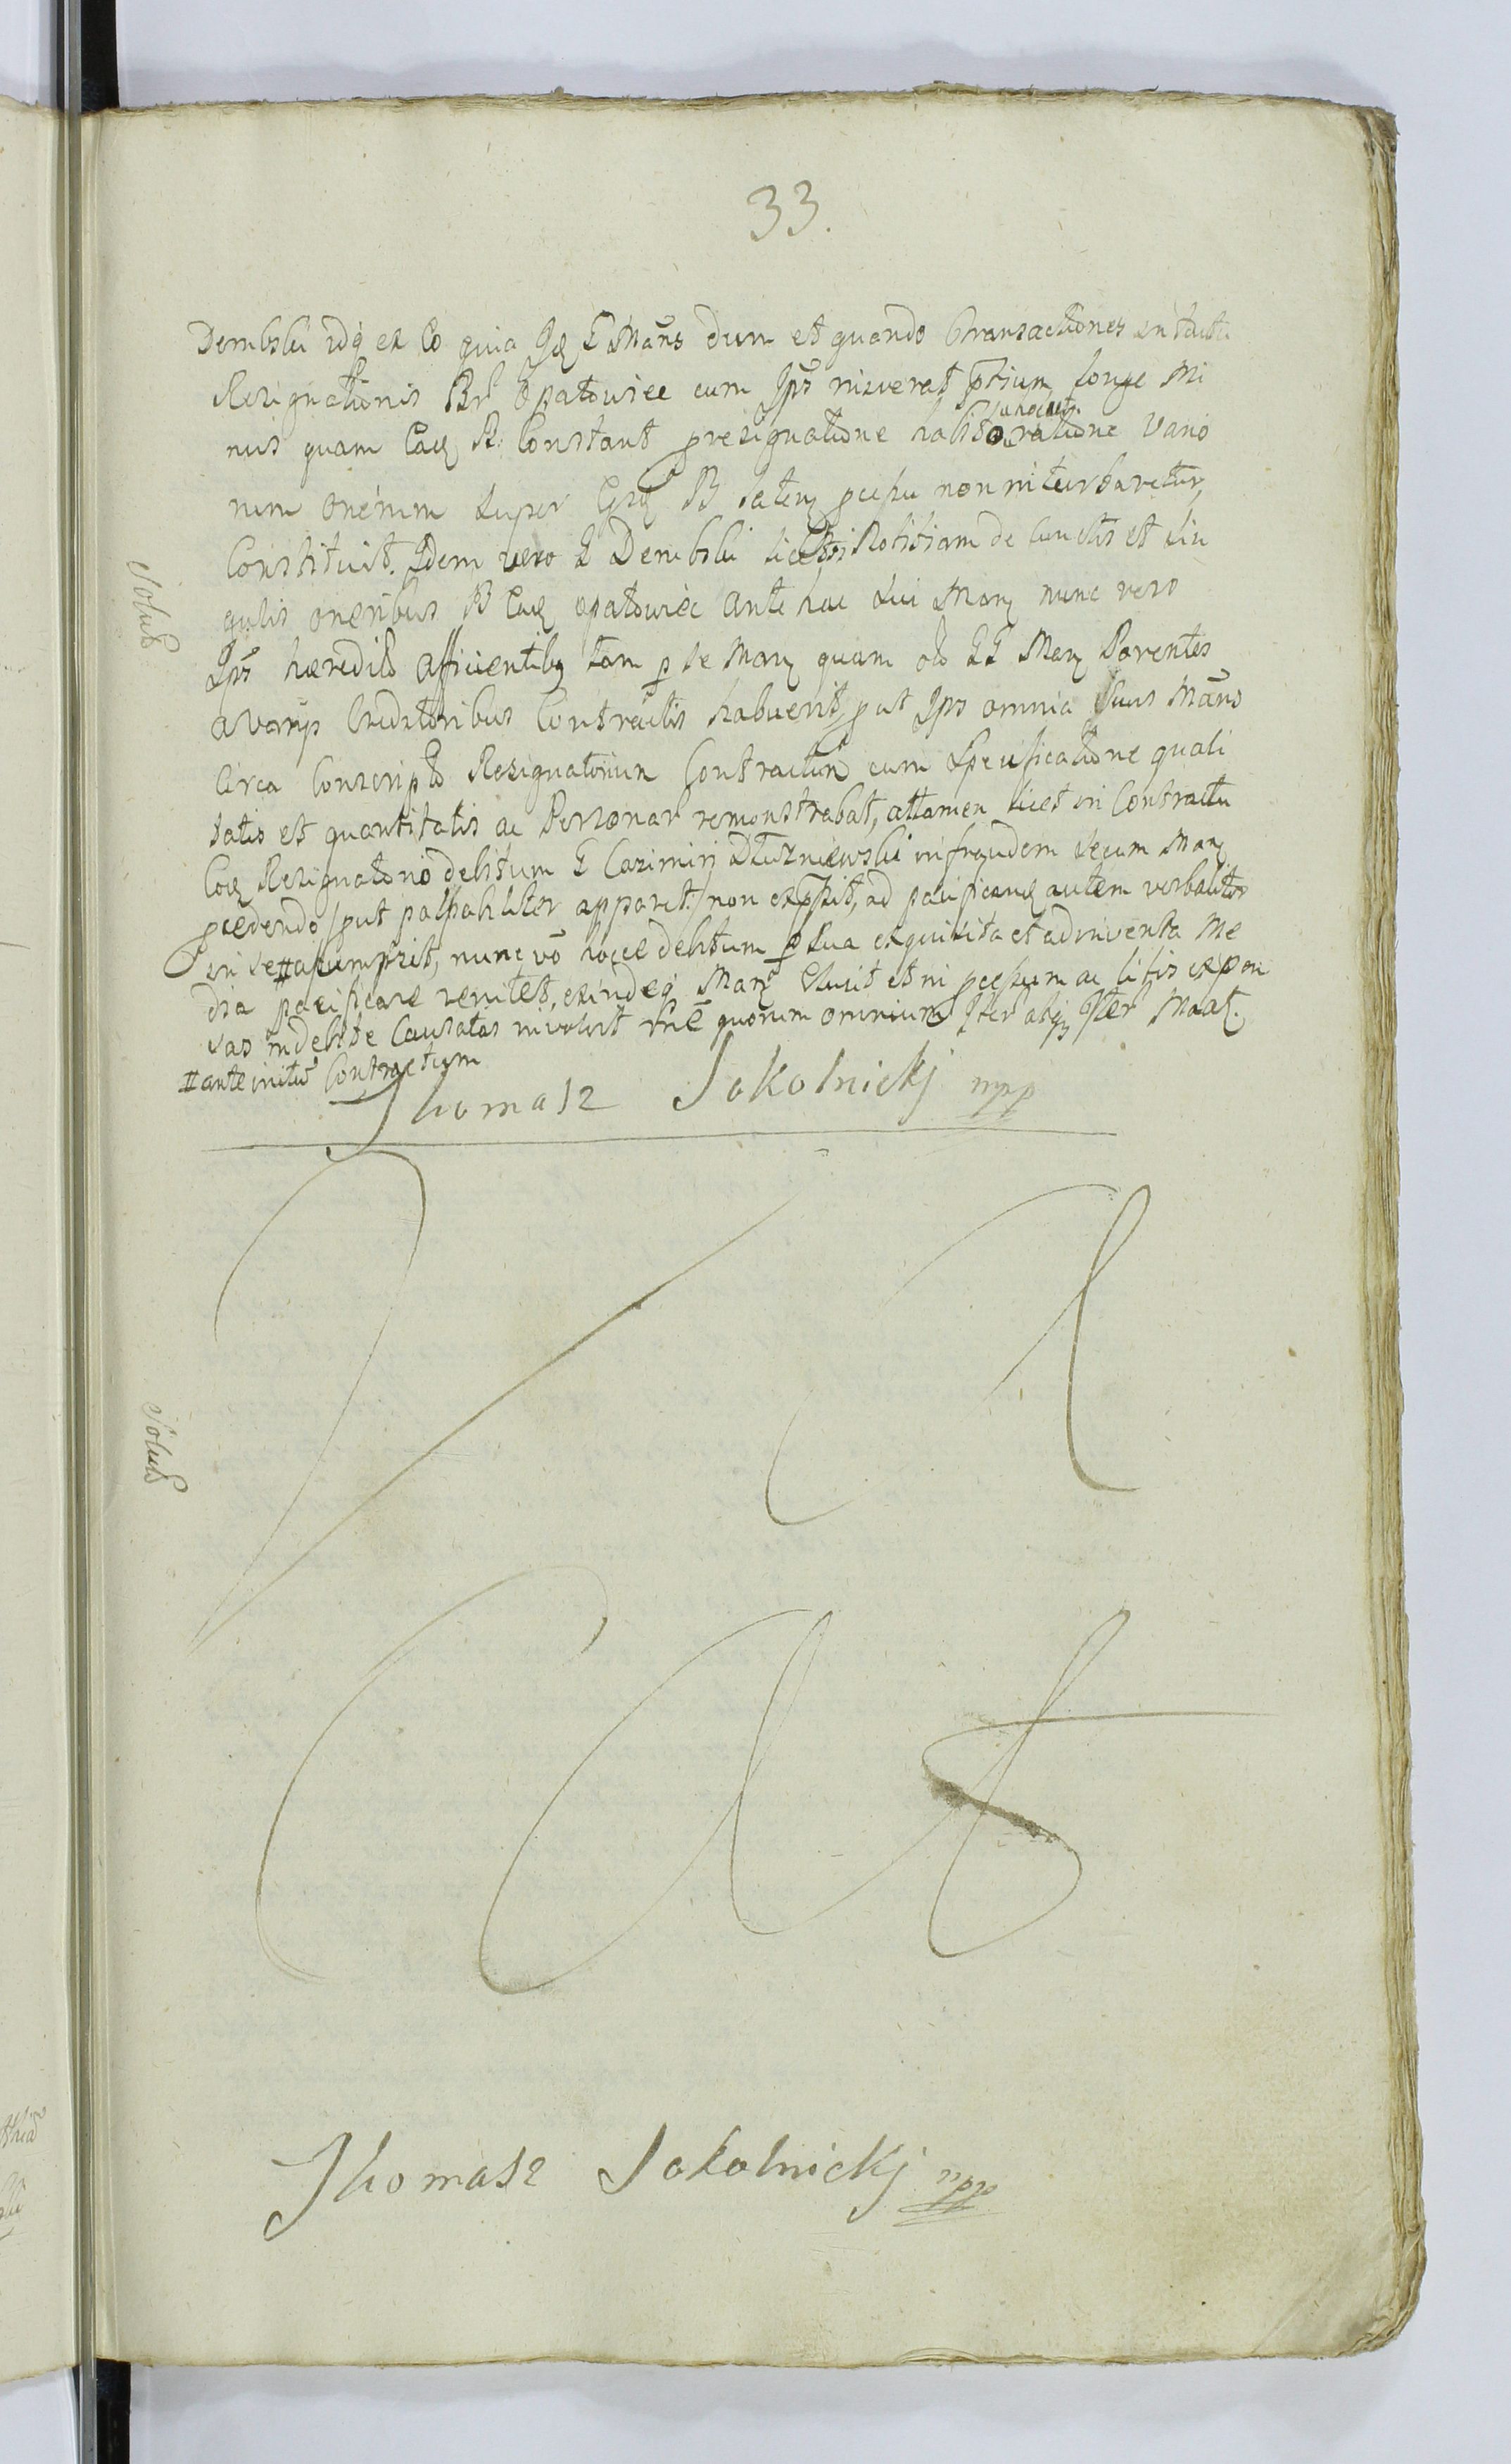 33.
Dembski idq ex eo quia Iq G Mans dum et quando transactiones intuitu
Resignationis Br Opatowiec cum Ips niverat ptium longe Mi
nus quam Eaq B: Constant presignatione habito ratione Vario
rum onerum super Eisq B satenq pcepu non niterbaretur
Constituit. Idem vero G Dembski licet Notitiam de cunctis et sin
gulis oneribus B Eaq Opatowiec antehac sui Manq nunc vero
Ips haeredit afficientibq tam p se Manq quam olt GG Manq Parentes
a varijs Creditoribus Contractis habuerit, put Ips omnia suus Mans
Circa Conscripto Resignatorium Contractum cum Specificatione quali
tatis et quantitatis ac Personar remonstrabat, attamen licet in Contractu
Eoq Resignatorio debitum G Casimiri Dłuzniewski in fraudem secum Manq
pcedendo /put palpabiliter apparet/ non exppsit, ad pacificanq autem verbaliter
in se # assumpsit, nunc vo hocce debitum p sua exquisita et adinventa Me
dia pacificare renitet, exindeq Manq Elusit et in pcepum ac litis expen
sas indebite Causatas involvit rne quorum omnium Iter atqz Iter Maat.
# ante initu Contractum
Thomasz Sokolnickj mpp
Solut
Solut
V A
C A T
Thomasz Sokolnickj mpp